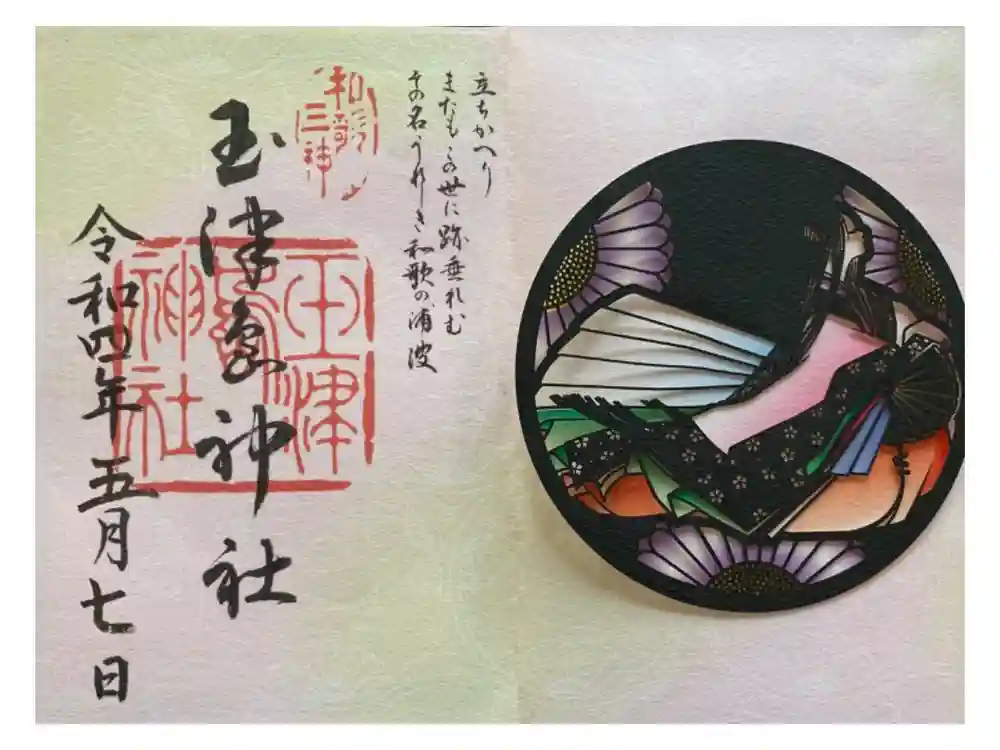 立ちかへり
またもこの世に跡垂れむ
その名うれしき和歌の浦波
和哥
三神
玉津島神社
玉津
島
神社
令和四年五月七日